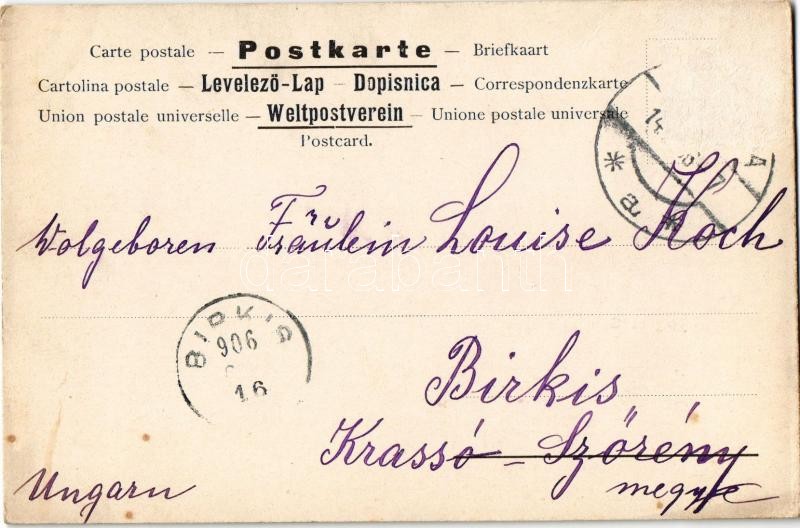 Carte postale — Postkarte — Briefkaart
Cartolina postale — Levelező-Lap — Dopisnica — Correspondenzkarte
Union postale universelle — Weltpostverein — Unione postale universale
Postcard.
14.
A
a
Wolgeboren Fräulein Louise Koch
darabanth
BIRKIS
906
16
Birkis
Krassó-Szörény
megye
Ungarn